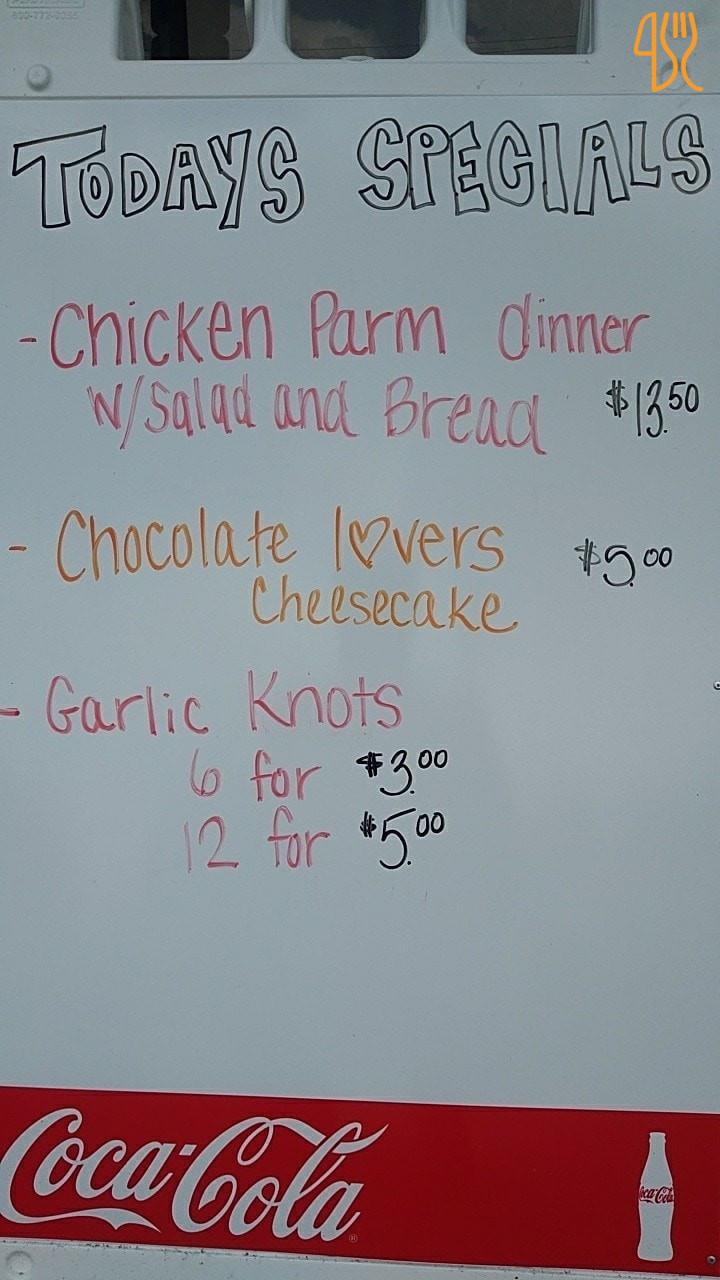 TODAYS SPECIALS
- Chicken Parm dinner
W/Salad and Bread $13.50
- Chocolate l♡vers $5.00
Cheesecake
- Garlic Knots
6 for $3.00
12 for $5.00
Coca-Cola
Coca-Cola